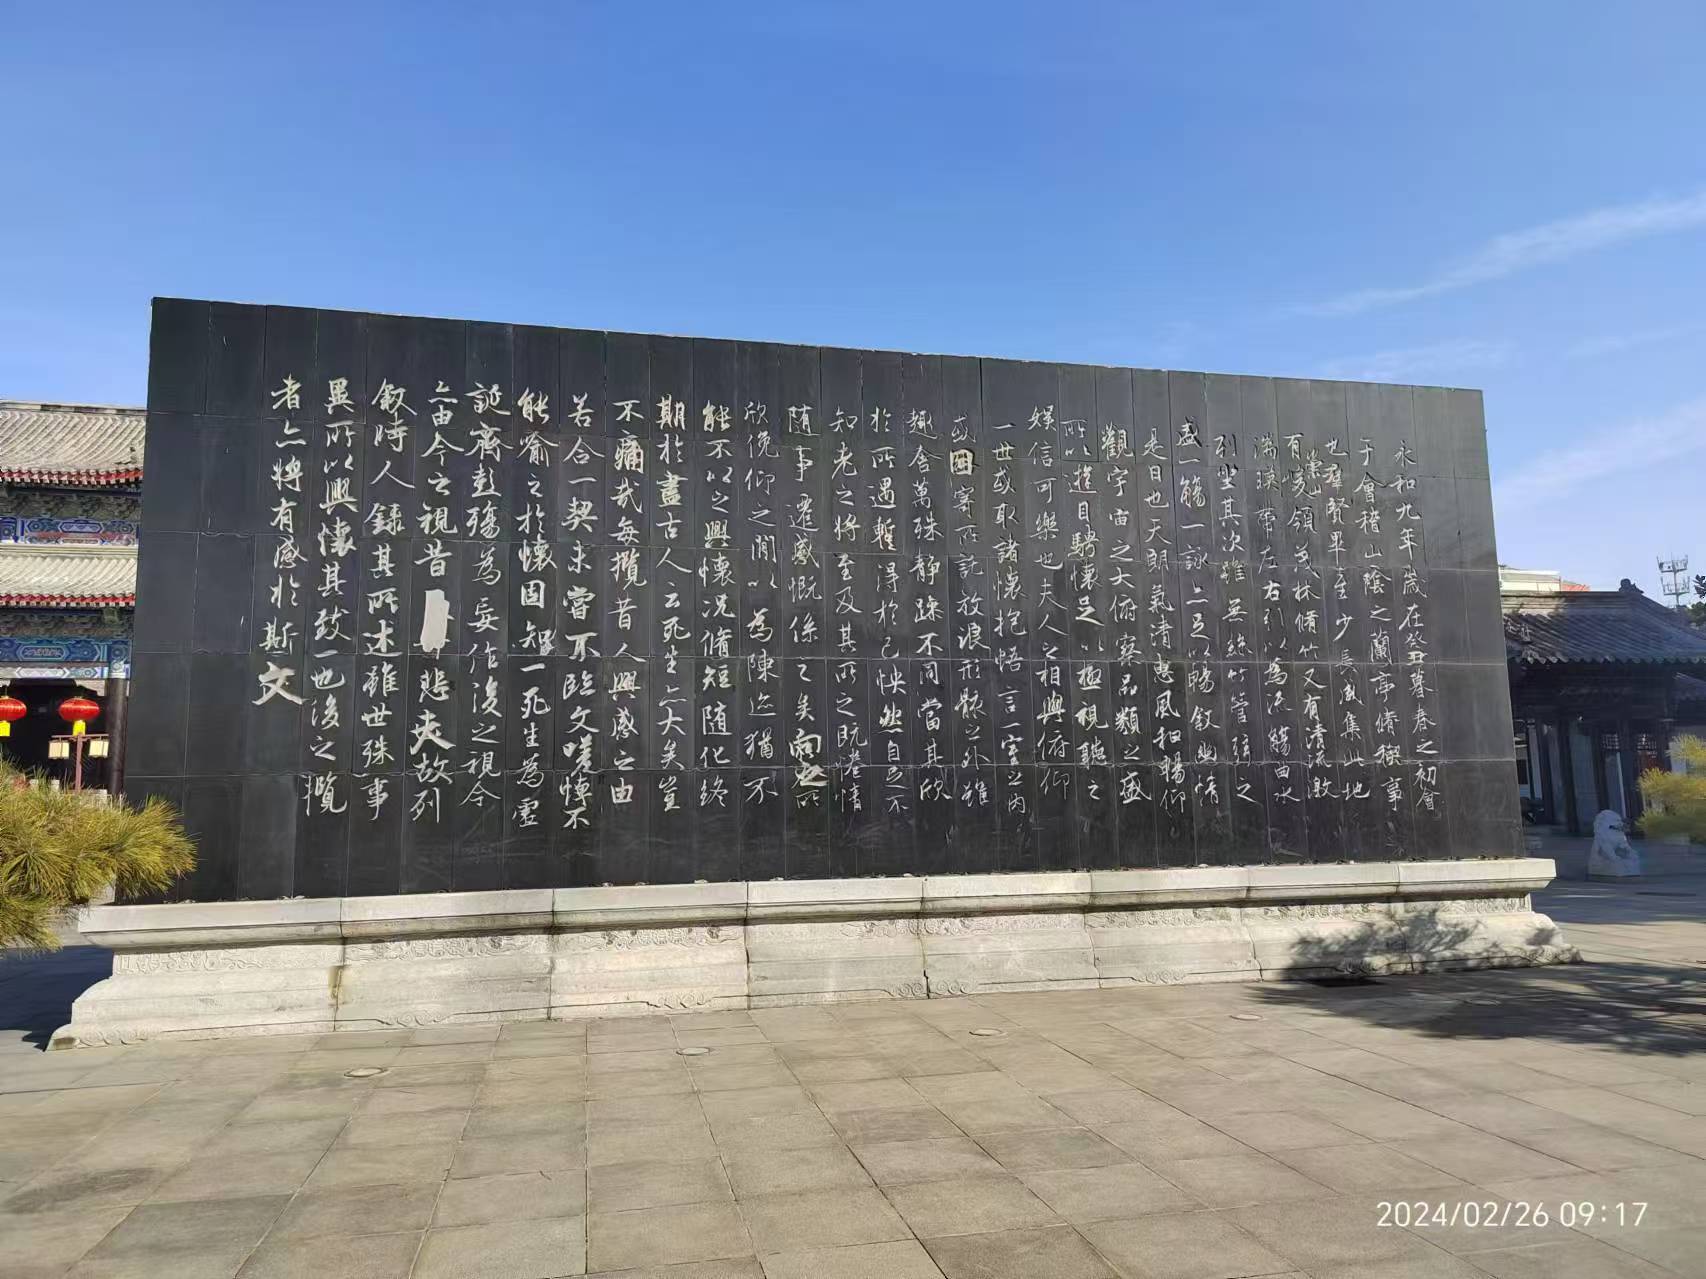 永和九年歲在癸丑暮春之初會
于會稽山陰之蘭亭脩稧事
也羣賢畢至少長咸集此地
有崇山峻領茂林脩竹又有清流激
湍暎帶左右引以為流觴曲水
列坐其次雖無絲竹管弦之
盛一觴一詠亦足以暢敘幽情
是日也天朗氣清惠風和暢仰
觀宇宙之大俯察品類之盛
所以遊目騁懷足以極視聽之
娛信可樂也夫人之相與俯仰
一世或取諸懷抱悟言一室之內
或因寄所託放浪形骸之外雖
趣舍萬殊靜躁不同當其欣
於所遇暫得於己怏然自足不
知老之將至及其所之既惓情
隨事遷感慨係之矣向之所
欣俛仰之閒以為陳迹猶不
能不以之興懷況脩短隨化終
期於盡古人云死生亦大矣豈
不痛哉每攬昔人興感之由
若合一契未嘗不臨文嗟悼不
能喻之於懷固知一死生為虛
誕齊彭殤為妄作後之視今
亦由今之視昔悲夫故列
敘時人錄其所述雖世殊事
異所以興懷其致一也後之攬
者亦將有感於斯文
2024/02/26 09:17